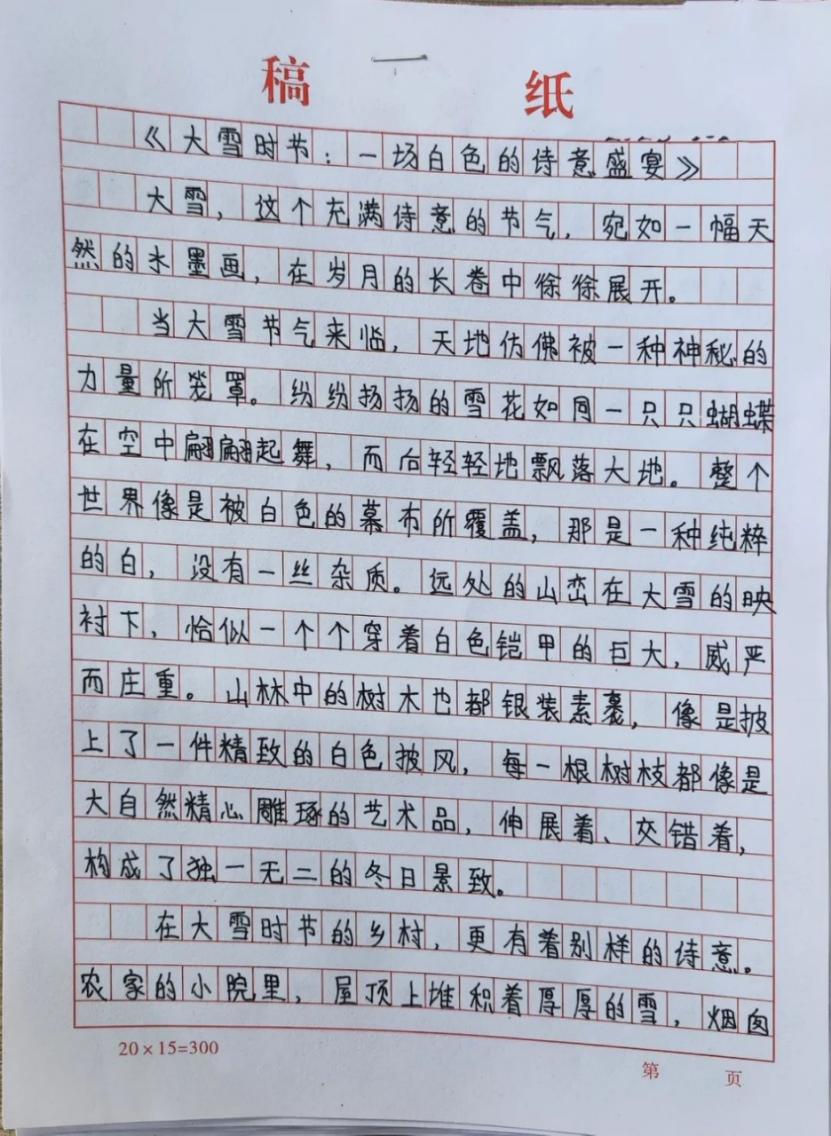 稿 纸
《大雪时节：一场白色的诗意盛宴》
大雪，这个充满诗意的节气，宛如一幅天
然的水墨画，在岁月的长卷中徐徐展开。
当大雪节气来临，天地仿佛被一种神秘的
力量所笼罩。纷纷扬扬的雪花如同一只只蝴蝶
在空中翩翩起舞，而后轻轻地飘落大地。整个
世界像是被白色的幕布所覆盖，那是一种纯粹
的白，没有一丝杂质。远处的山峦在大雪的映
衬下，恰似一个个穿着白色铠甲的巨大，威严
而庄重。山林中的树木也都银装素裹，像是披
上了一件精致的白色披风，每一根树枝都像是
大自然精心雕琢的艺术品，伸展着、交错着，
构成了独一无二的冬日景致。
在大雪时节的乡村，更有着别样的诗意。
农家的小院里，屋顶上堆积着厚厚的雪，烟囱
20×15=300
第 页